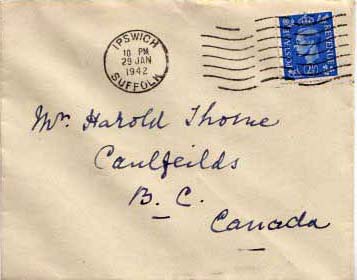 IPSWICH
10. PM
29 JAN
1942
SUFFOLK
POSTAGE
REVENUE
2½
Mr. Harold Thorne
Caulfeilds
B. C.
Canada